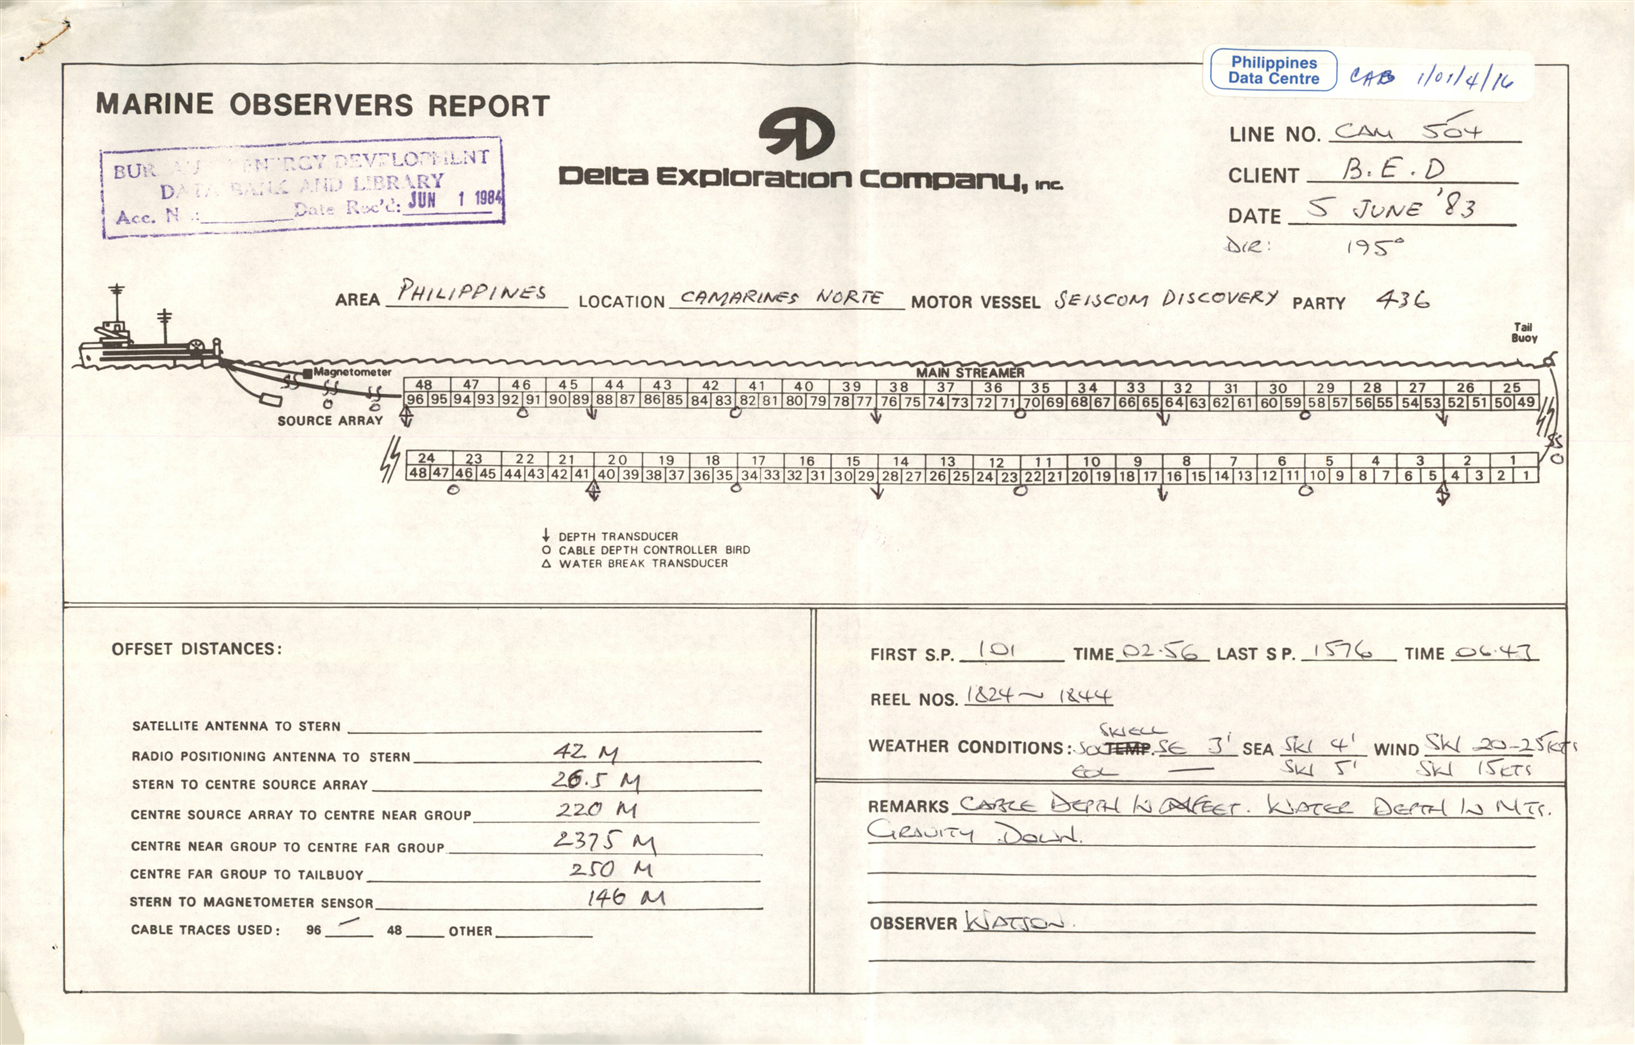 Philippines
Data Centre
CAB 1/01/4/16
MARINE OBSERVERS REPORT
BUR ENERGY DEVELOPMENT
DATA BANK AND LIBRARY
Acc. N .: Date Rec'd: JUN 1 1984
SD
Delta Exploration Company, inc.
LINE NO. CAM 504
CLIENT B.E.D
DATE 5 JUNE '83
DIR: 195°
AREA PHILIPPINES LOCATION CAMARINES NORTE MOTOR VESSEL SEISCOM DISCOVERY PARTY 436
Tail
Buoy
Magnetometer
MAIN STREAMER
48 47 46 45 44 43 42 41 40 39 38 37 36 35 34 33 32 31 30 29 28 27 26 25
96 95 94 93 92 91 90 89 88 87 86 85 84 83 82 81 80 79 78 77 76 75 74 73 72 71 70 69 68 67 66 65 64 63 62 61 60 59 58 57 56 55 54 53 52 51 50 49
SOURCE ARRAY
24 23 22 21 20 19 18 17 16 15 14 13 12 11 10 9 8 7 6 5 4 3 2 1
48 47 46 45 44 43 42 41 40 39 38 37 36 35 34 33 32 31 30 29 28 27 26 25 24 23 22 21 20 19 18 17 16 15 14 13 12 11 10 9 8 7 6 5 4 3 2 1
DEPTH TRANSDUCER
CABLE DEPTH CONTROLLER BIRD
WATER BREAK TRANSDUCER
OFFSET DISTANCES:
SATELLITE ANTENNA TO STERN
RADIO POSITIONING ANTENNA TO STERN 42 M
STERN TO CENTRE SOURCE ARRAY 26.5 M
CENTRE SOURCE ARRAY TO CENTRE NEAR GROUP 220 M
CENTRE NEAR GROUP TO CENTRE FAR GROUP 2375 M
CENTRE FAR GROUP TO TAILBUOY 250 M
STERN TO MAGNETOMETER SENSOR 146 M
CABLE TRACES USED: 96 48 OTHER
FIRST S.P. 101 TIME 02.56 LAST S P. 1576 TIME 06.43
REEL NOS. 1824 ~ 1844
SWELL
WEATHER CONDITIONS: SOL TEMP. SE 3' SEA SW 4' WIND SW 20-25KTS
EOL — SW 5' SW 15KTS
REMARKS CABLE DEPTH IN FEET. WATER DEPTH IN MTS.
GRAVITY DOWN.
OBSERVER WATSON.